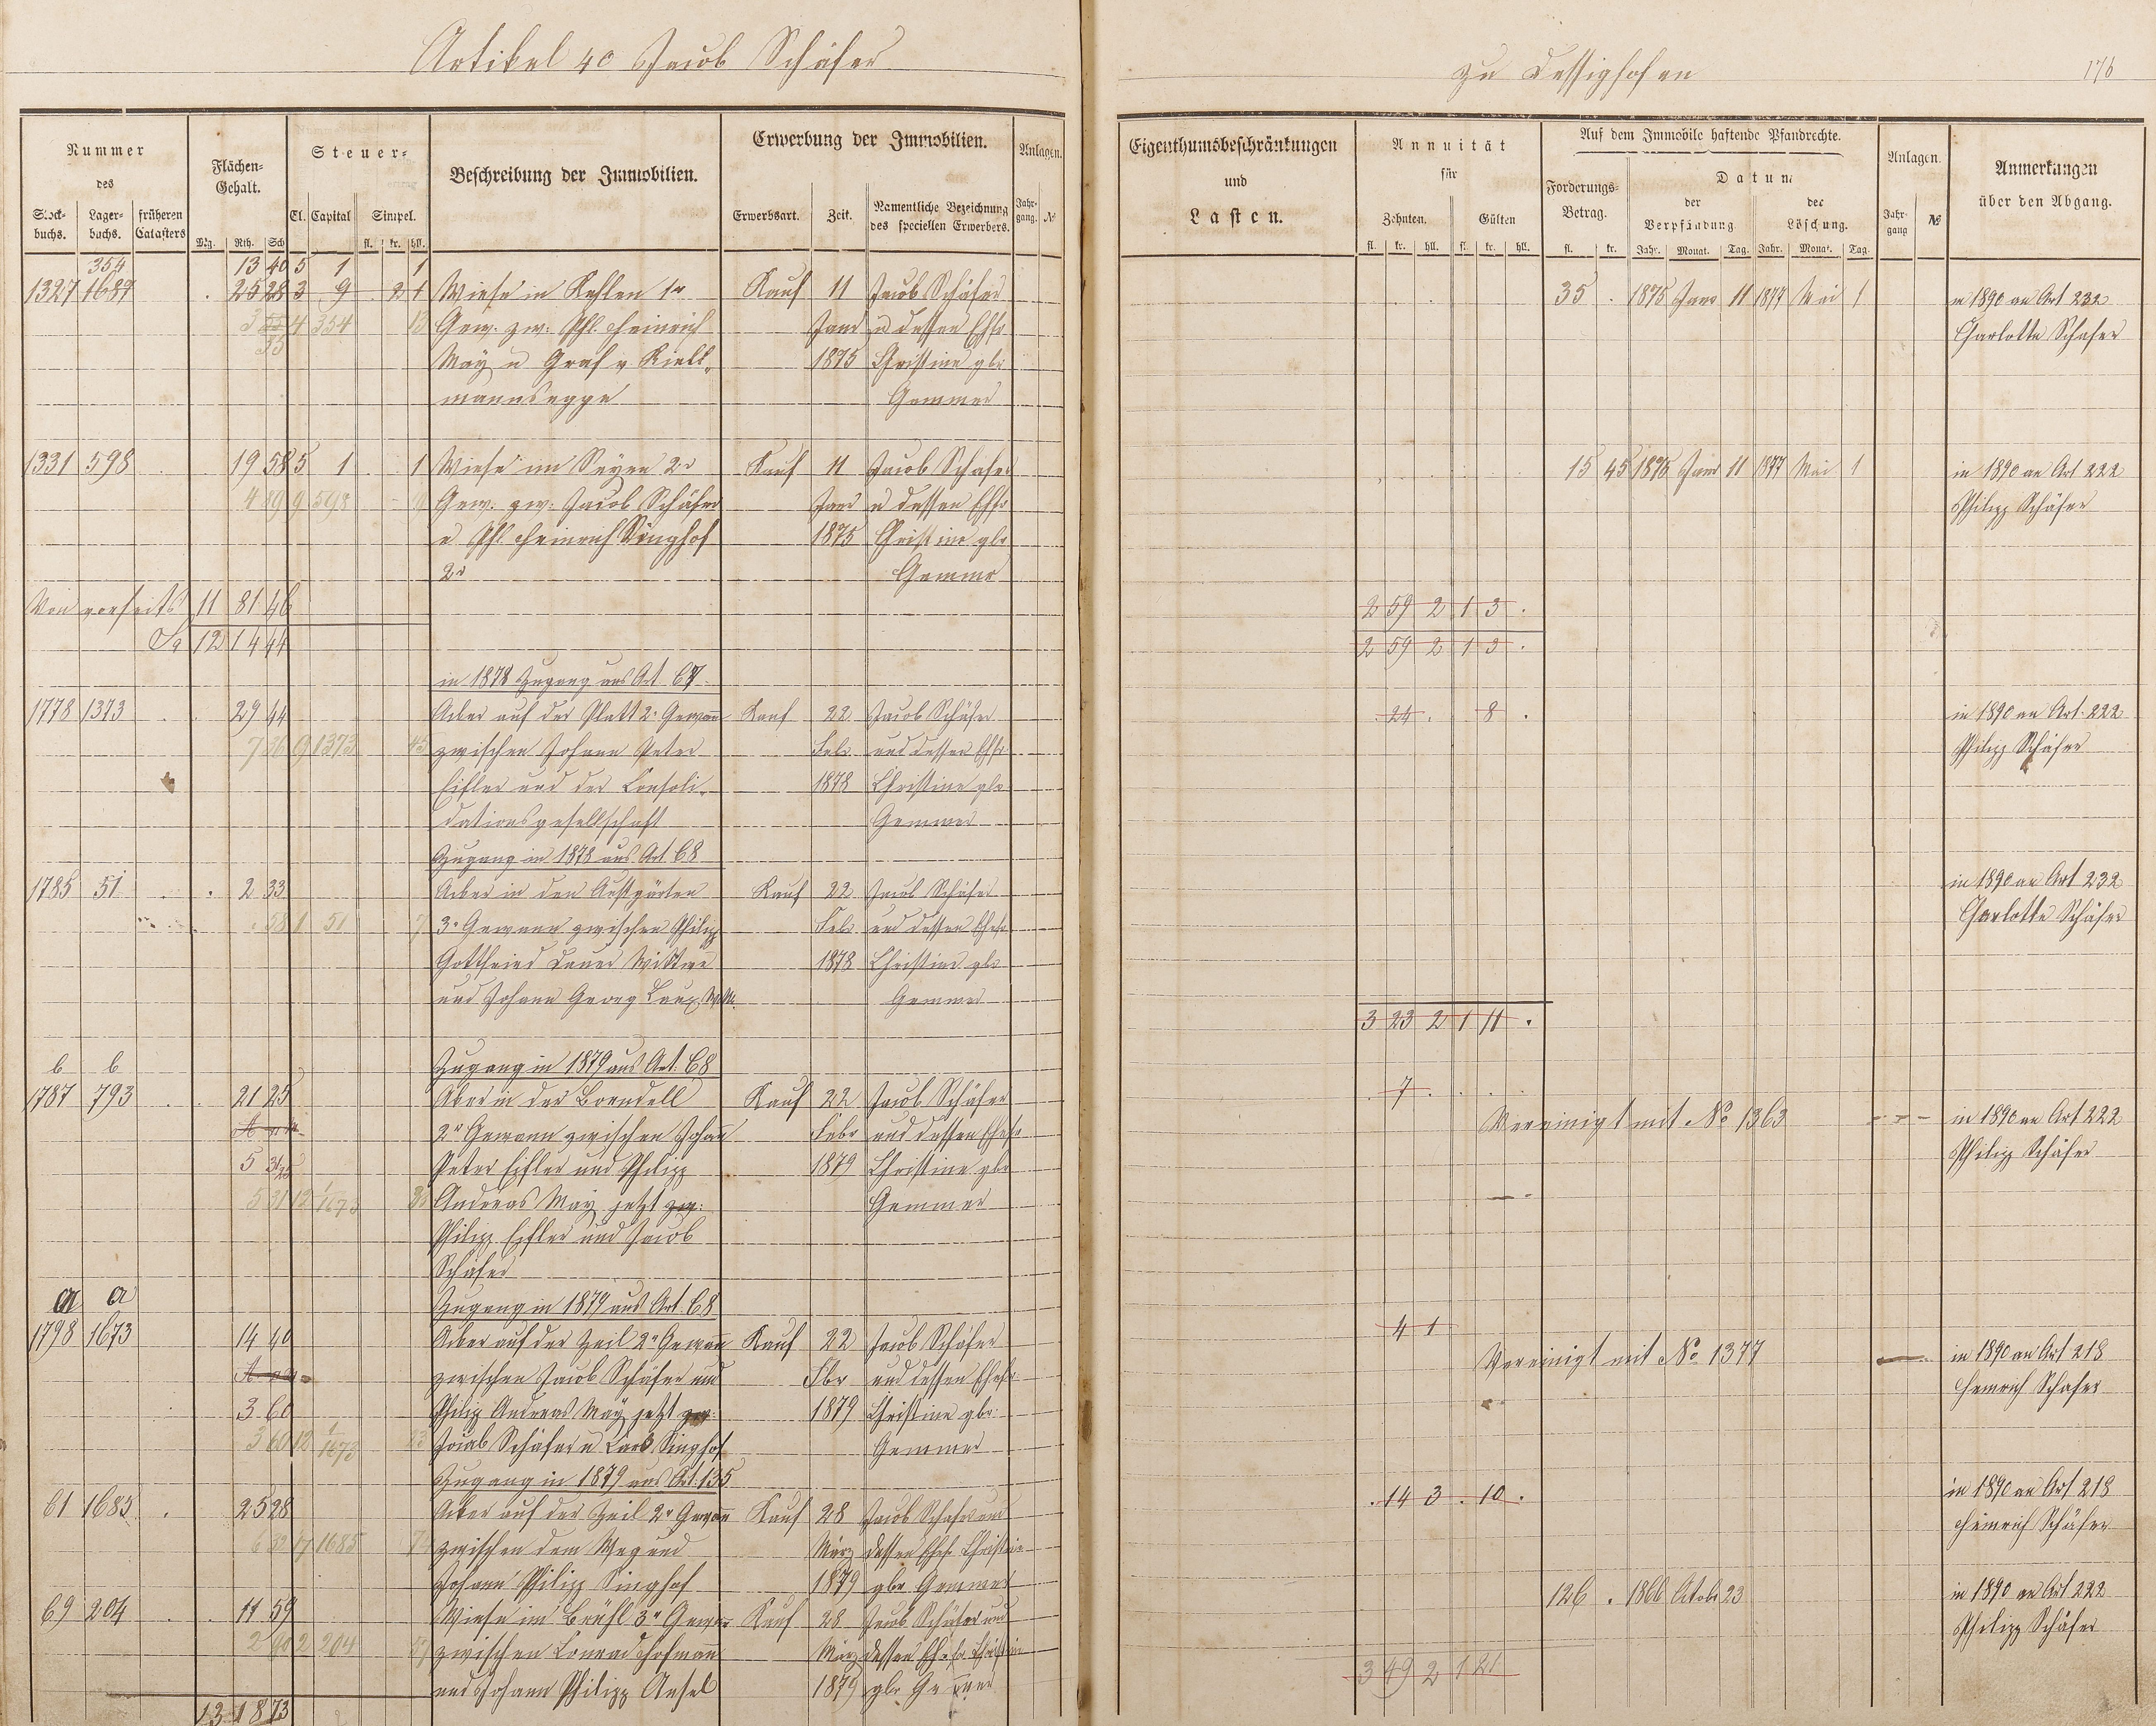 Artikel 40 Jacob Schäfer
zu Dessighofen
176
Nummer des
Stock-buchs. Lager-buchs. früheren Catasters
Flächen-Gehalt.
Mrg. Rth. Sch
Steuer-
Cl. Capital Simpel.
fl. kr. hll.
Beschreibung der Immobilien.
Erwerbung der Immobilien.
Erwerbsart. Zeit. Namentliche Bezeichnung des speciellen Erwerbers.
Anlagen.
Jahr-gang. №
Eigenthumsbeschränkungen und Lasten.
Annuität für
Zehnten. Gülten
fl. kr. hll. fl. kr. hll.
Auf dem Immobile haftende Pfandrechte.
Forderungs-Betrag.
fl. kr.
Datum
der Verpfändung der Löschung.
Jahr. Monat. Tag. Jahr. Monat. Tag.
Anlagen.
Jahr-gang №
Anmerkungen über den Abgang.
354 13 40 5 1 1
1327 1687 25 28 3 9 2 1 Wiese in Kehlen 1r Kauf 11 Jacob Schäfer 35 . 1875 Janr 11 1877 Mai 1 in 1890 an Art 232
3 4 354 13 Gew. zw: Phl. Heinrich Janr u dessen Ehfr Charlotte Schäfer
35 May u Graf v Kiell- 1875 Christine gbr
mannsegge Gemmer
1331 598 19 58 5 1 1 Wiese im Seyen 2r Kauf 11 Jacob Schäfer 15 45 1875 Janr 11 1877 Mai 1 in 1890 an Art 222
4 89 9 598 Gew. zw: Jacob Schäfer Janr u dessen Ehfr Philipp Schäfer
u Phl Heinrich Singhof 1875 Christine gbr
2r Gemmer
Von vorseits 11 81 46 2 59 2 1 3 .
Sa 12 14 44 2 59 2 1 3 .
in 1878 Zugang aus Art 67
1778 1373 29 44 Acker auf der Platt 2r Gewann Kauf 22 Jacob Schäfer 24 . 8 . in 1890 an Art. 222
7 36 9 1373 45 zwischen Johann Peter Febr und dessen Ehfr Philipp Schäfer
Eifler und der Consoli- 1878 Christine gbr
dationsgesellschaft Gemmer
Zugang in 1878 aus Art 68
1785 51 2 33 Acker in den Kastgärten Kauf 22 Jacob Schäfer in 1890 an Art 232
58 1 51 7 3r Gewann zwischen Philipp Febr und dessen Ehefr Charlotte Schäfer
Gottfried Wittwe 1878 Christine gbr
und Johann Georg Gemmer
3 23 2 1 11 .
b b Zugang in 1879 aus Art. 68
1787 793 21 25 Acker in der Borndell Kauf 22 Jacob Schäfer 7 . Vereinigt mit No 1363 in 1890 an Art 222
2r Gewann zwischen Johann Febr und dessen Ehefr Philipp Schäfer
5 31 25 Peter Eifler und Philipp 1879 Christine gbr
5 31 12 1/1673 Andreas May jetzt zw: Gemmer
Philipp Eifler und Jacob
Schäfer
a a Zugang in 1879 aus Art. 68
1798 1673 14 40 Acker auf der Zeil 2r Gewann Kauf 22 Jacob Schäfer 4 1 Vereinigt mit No 1377 in 1890 an Art 218
zwischen Jacob Schäfer und Fbr und dessen Ehefr Heinrich Schäfer
3 60 Philip Andreas May jetzt zw: 1879 Christine gbr:
3 60 12 1/1673 23 Jacob Schäfer u Carl Singhof Gemmer
Zugang in 1879 aus Art. 135
61 1685 25 28 Acker auf der Zeil 2r Gewann Kauf 28 Jacob Schäfer und . 14 3 . 10 . in 1890 an Art 218
6 32 17 1685 zwischen dem Weg und März dessen Ehefr Christine Heinrich Schäfer
Johann Philipp Singhof 1879 gbr Gemmer
69 204 11 59 Wiese im Brühl 3r Gewann Kauf 28 Jacob Schäfer und 126 . 1866 Octobr 23 in 1890 an Art 222
2 90 2 204 zwischen Conrad Hofmann März dessen Ehefr Christine Philipp Schäfer
und Johann Philipp Ansel 1879 gbr Gemmer 3 49 2 1 21
13 18 73